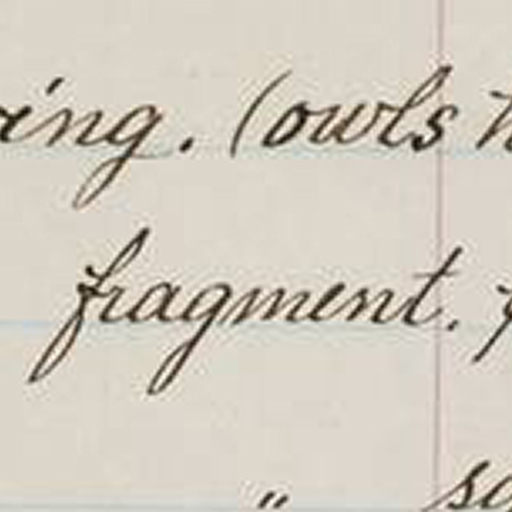 ing. (owls
fragment.
"